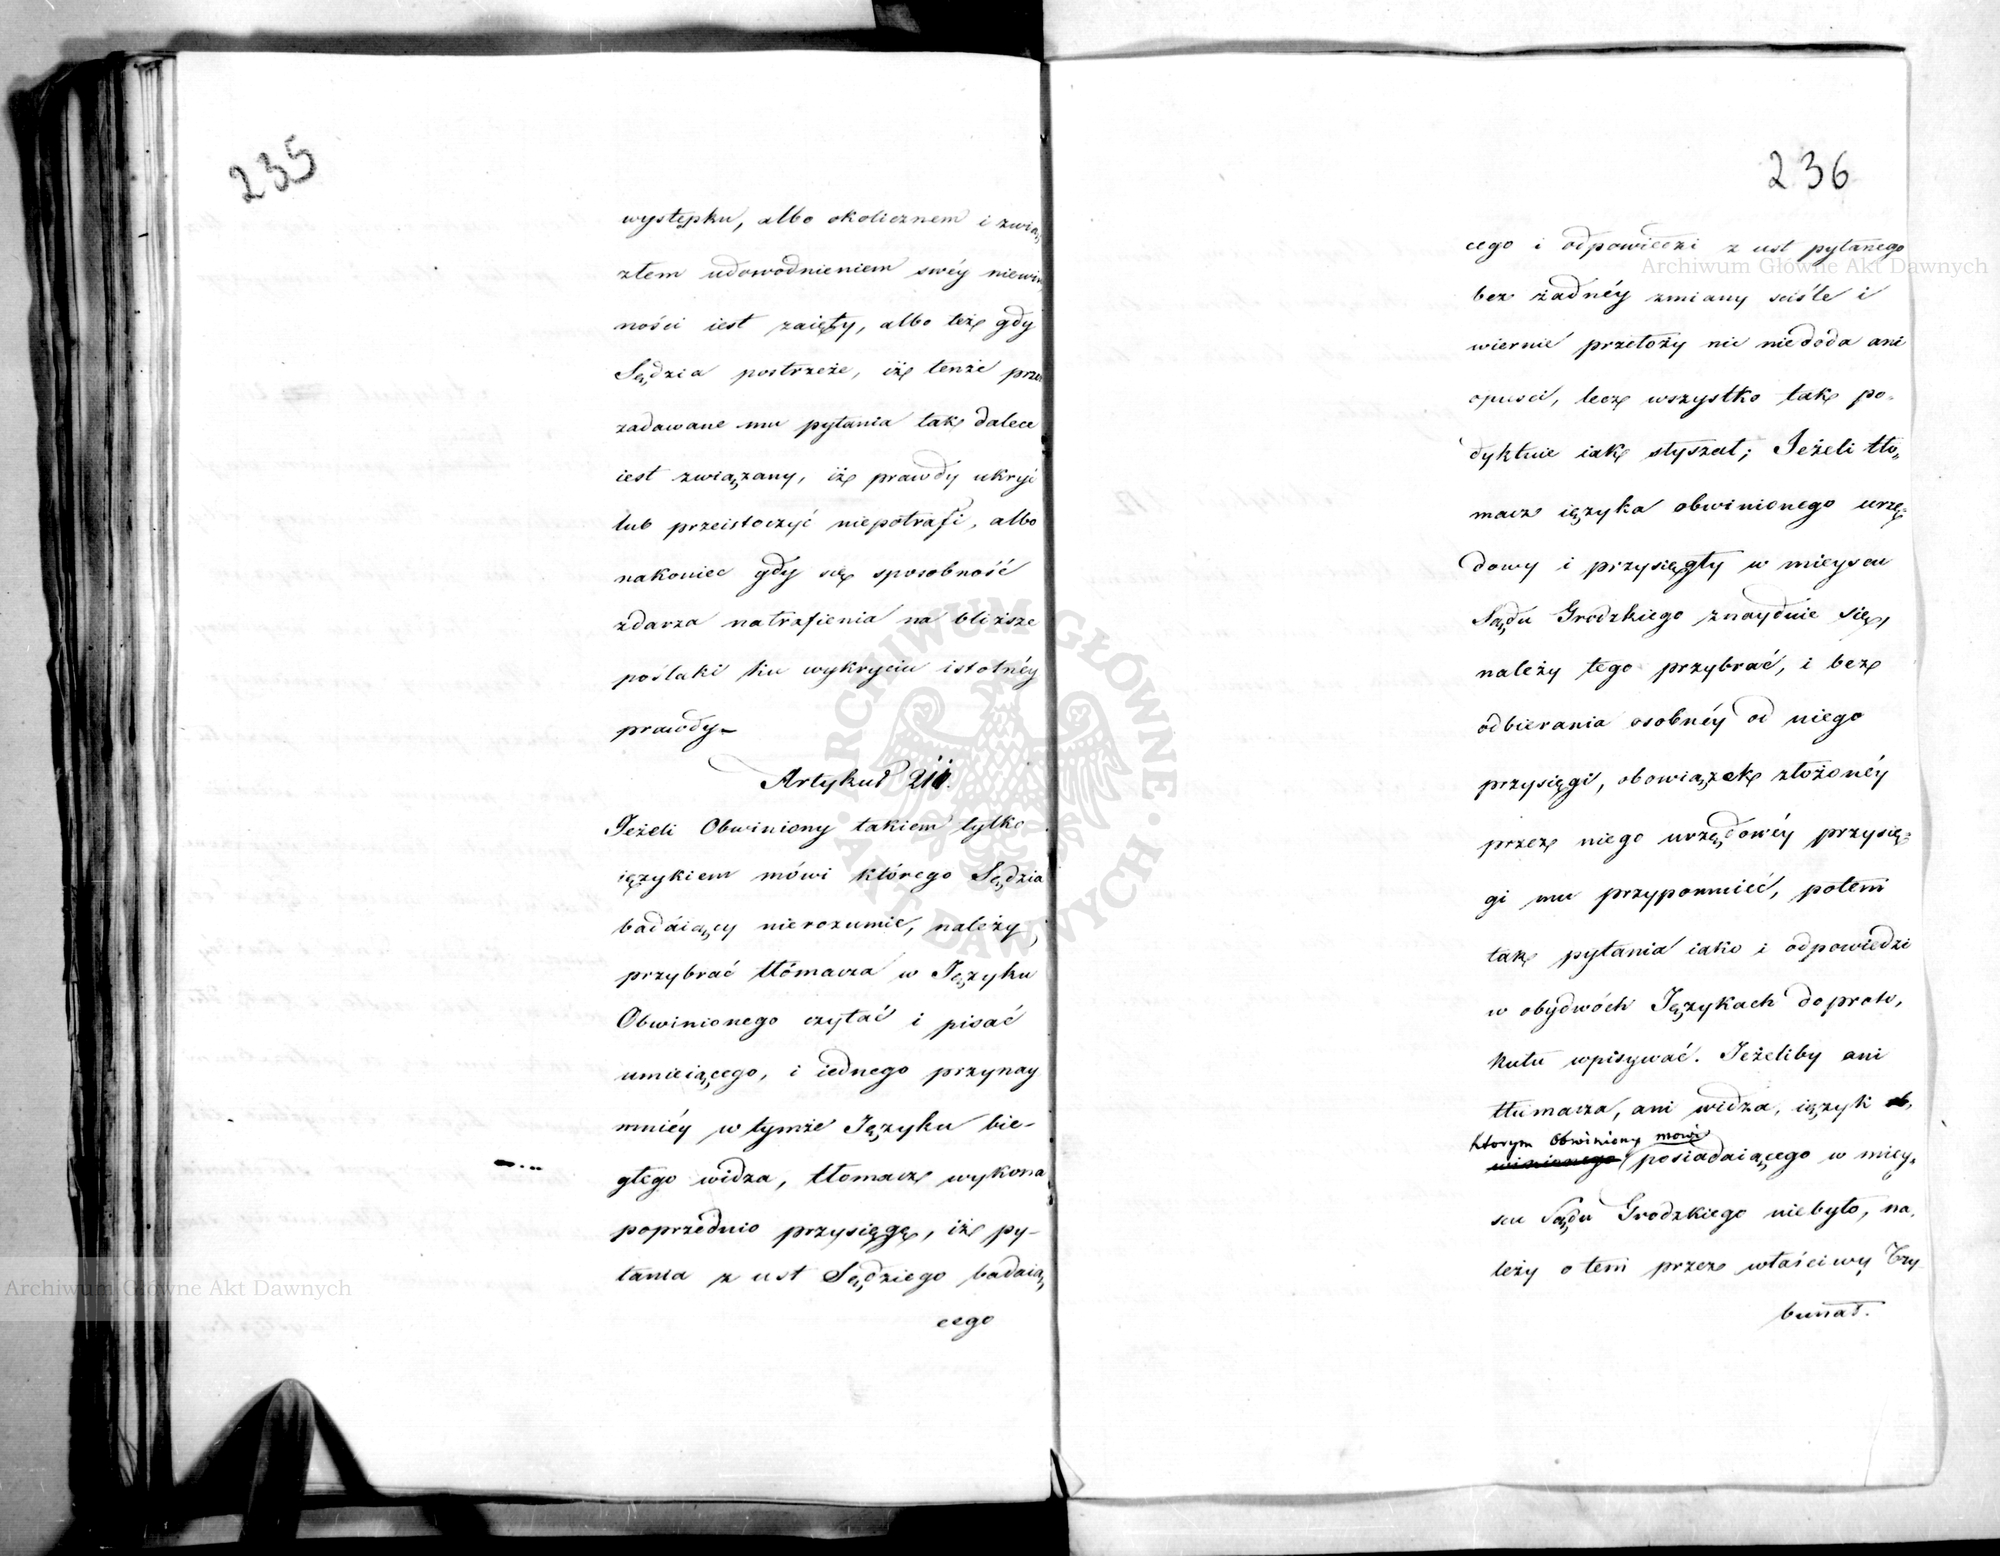 235
występku, albo okolicznem i zwią,
złem udowodnieniem swéy niewin,
ności iest zaięty, albo też gdy
Sędzia postrzeże, iż tenże przez
zadawane mu pytania tak dalece
iest związany, iż prawdy ukryć
lub przeistoczyć niepotrafi, albo
nakoniec gdy się sposobność
zdarza natrafienia na bliższe
poślaki ku wykryciu istotnéy
prawdy
Artykuł
Jeżeli Obwiniony takiem tylko
ięzykiem mówi którego Sędzia
badaiący nierozumie, należy
przybrać tłómacza w Języku
Obwinionego czytać i pisać
umieiącego, i iednego przynay
mniéy w tymże Języku bie-
głego widza, tłomacz wykona
poprzednio przysięgę, iż py-
tania z ust Sędziego badaią,
cego
236
cego i odpowiedzi z ust pytanego
bez żadnéy zmiany sciśle i
wiernie przełoży nic niedoda ani
opusci, lecz wszystko tak po-
dyktuie iak słyszał; Jeżeli tło-
macz ięzyka obwinionego urzę-
dowy i przysięgły w mieyscu
Sądu Grodzkiego znayduie się,
należy tego przybrać, i bez
odbierania osobnéy od niego
przysięgi, obowiązek złożonéy
przez niego urzędowéy przysię-
gi mu przypomnieć, potem
tak pytania iako i odpowiedzi
w obydwóch Językach do proto,
kułu wpisywać. Jeżeliby ani
tłumacza, ani widza, ięzyk ob,
ktorym Obwiniony mowi
winionego posiadaiącego w miey,
scu Sądu Grodzkiego niebyło, na,
leży o tem przez właściwy Try
bunał.
Archiwum Główne Akt Dawnych
Archiwum Główne Akt Dawnych
ARCHIWUM GŁÓWNE AKT DAWNYCH